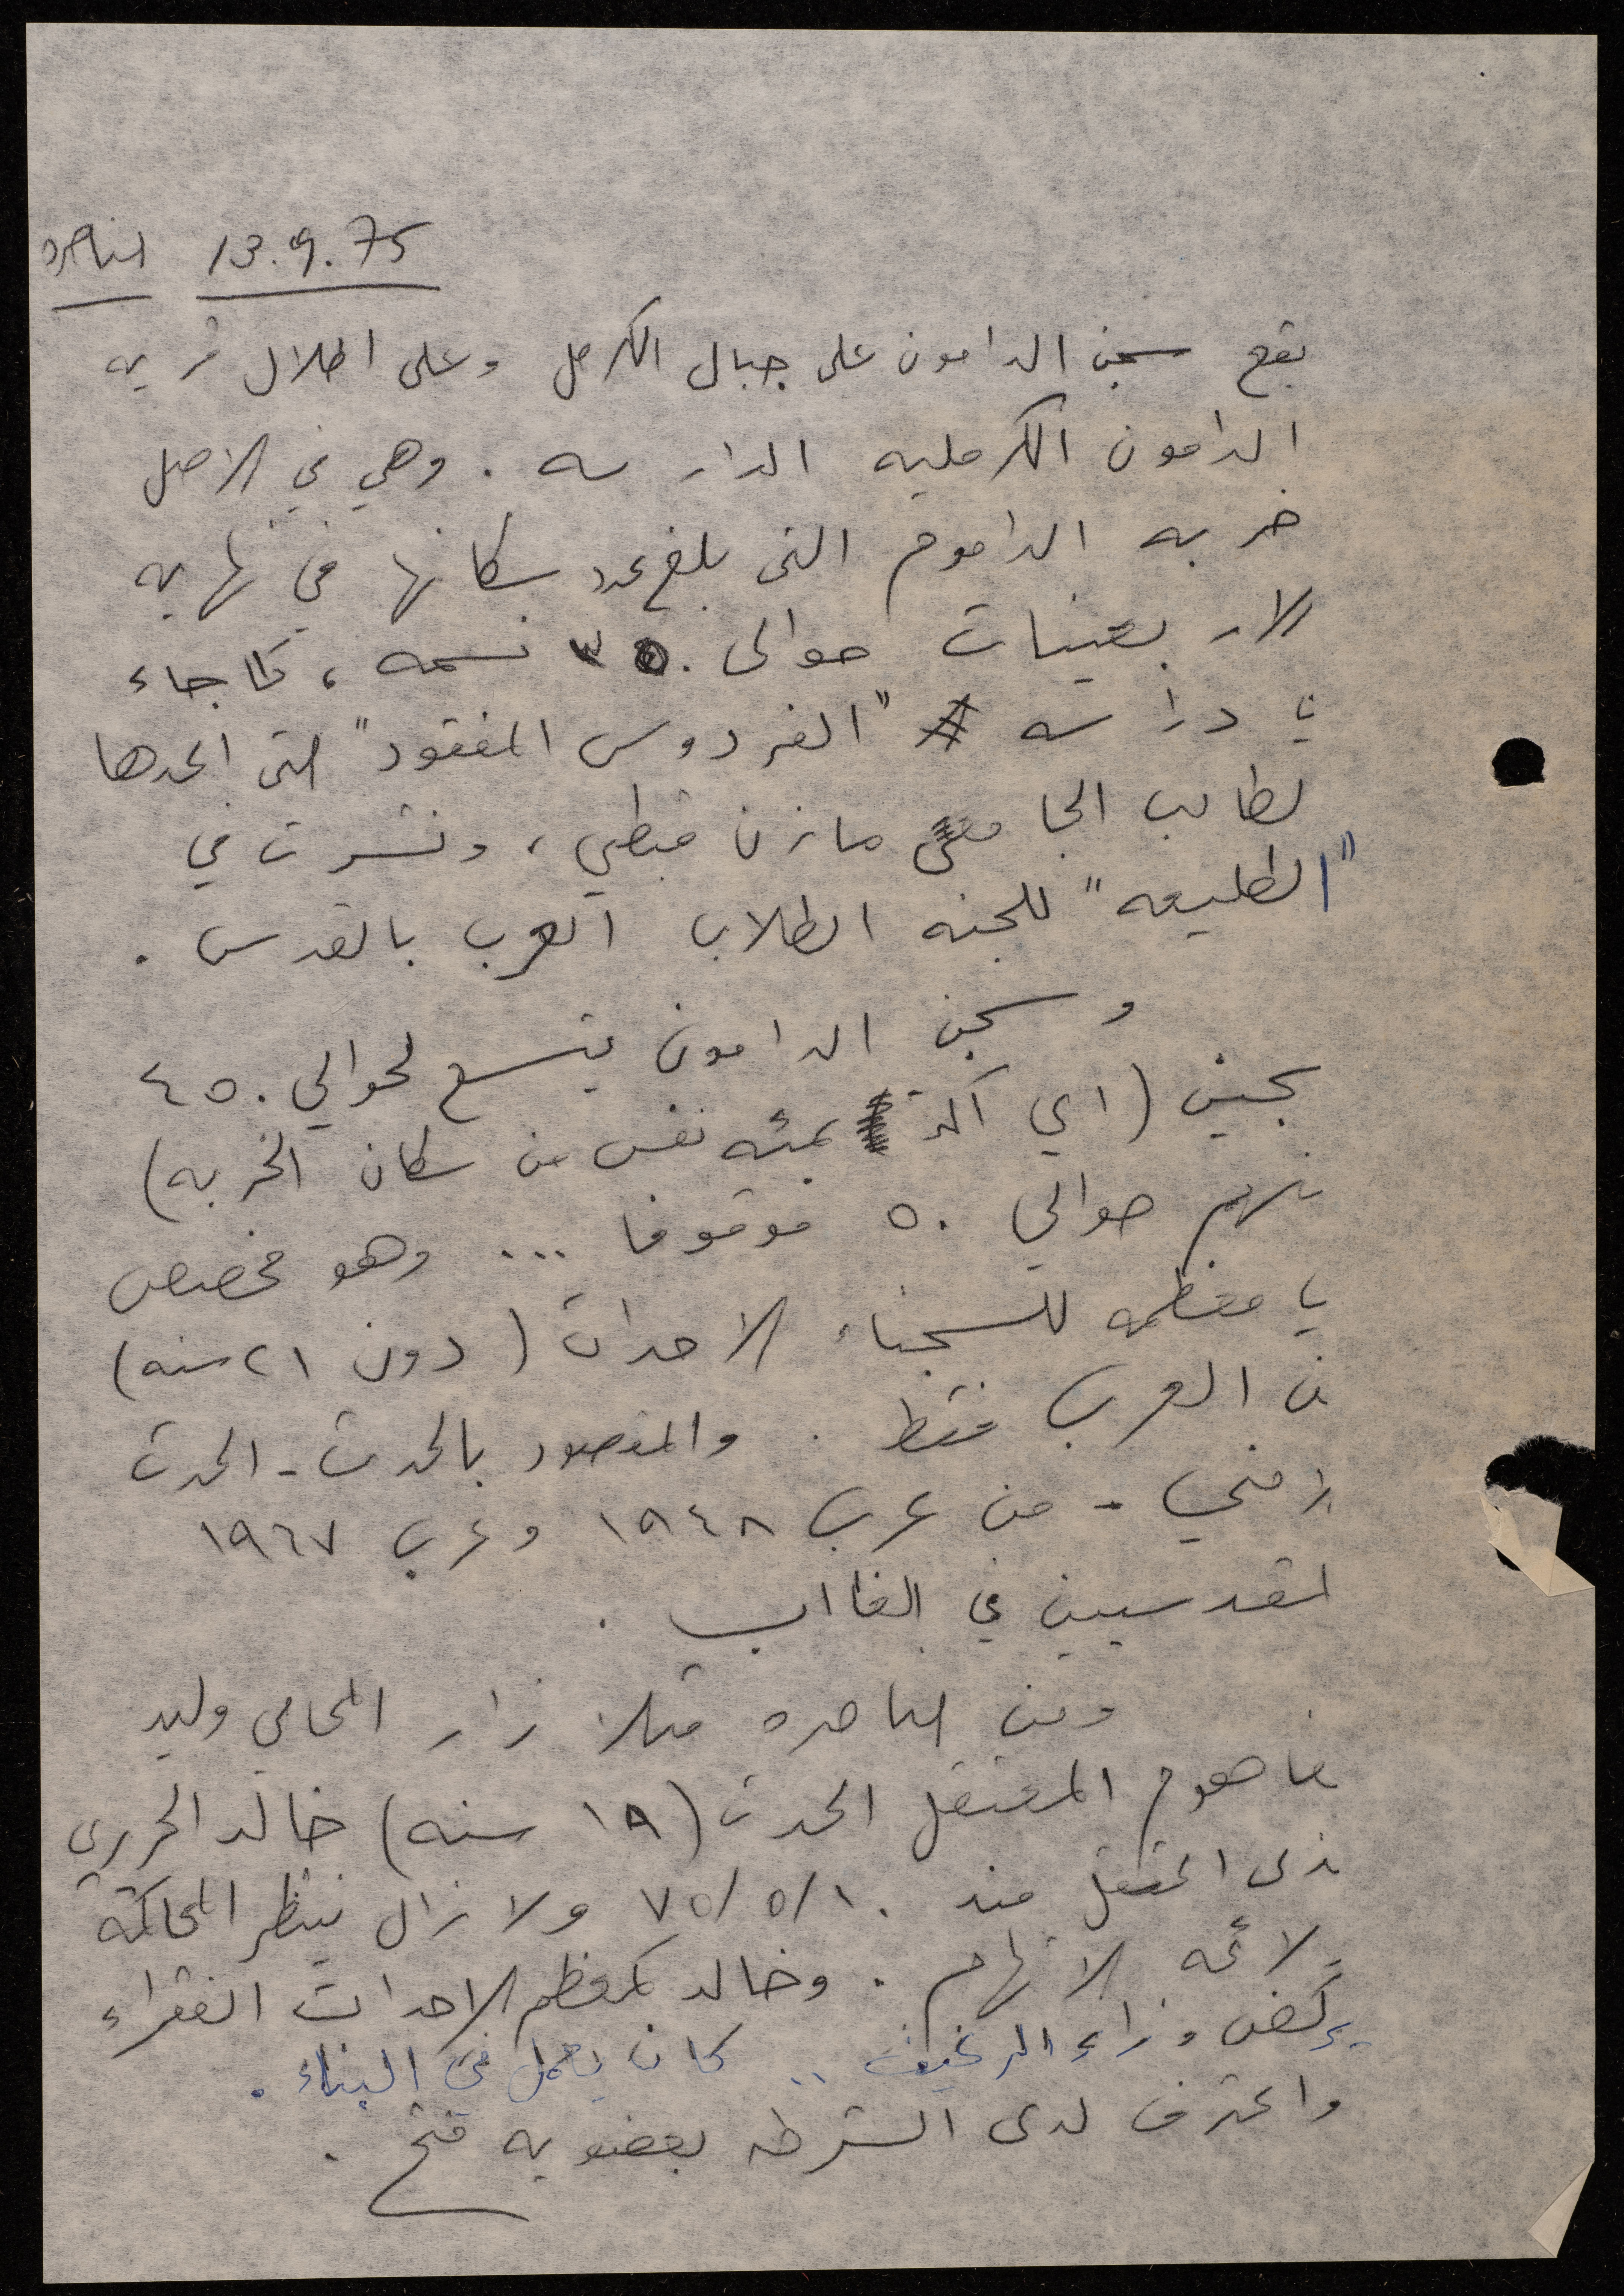 13.9.75 الناصره
يقع سجن الدامون على جبال الكرمل وعلى اطلال قريه
الدامون الكرمليه الدارسه . وهي في الاصل
خربه الداموم التى بلغ عدد سكانها في نهايه
الاربعينات حوالى ٣٥٠ نسمه ، كما جاء
في دراسه "الفردوس المفقود" التى اعدها
لطالب الجامعي مازن قبطي ، ونشرت في
"الطليعه" للجنه الطلاب العرب بالقدس .
وسجن الدامون يتسع لحوالي ٤٥٠
سجين (اي اكثر بمئه نفس من سكان الخربه)
منهم حوالي ٥٠ موقوفا ... وهو مخصص
في معظمه للسجناء الاحداث (دون ٢١ سنه)
من العرب فقط . والمقصود بالحدث - الحدث
الامني - من عرب ١٩٤٨ وعرب ١٩٦٧
لمقدسيين في الغالب .
ومن الناصره مثلا زار المحامي وليد
لفاهوم المعتقل الحدث (١٩ سنه) خالد الحرري
لذى اعتقل منذ ٧٥/٥/١٠ ولا زال ينتظر المحاكمة
ولائحه الاتهام . وخالد كمعظم الاحداث الفقراء
يركض وراء الرغيف .. كان يعمل في البناء .
واعترف لدى الشرطه بعضويه فتح .